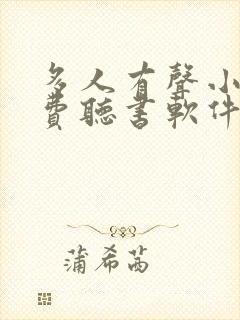 多人有聲小
費聽書軟件
蒲希茜